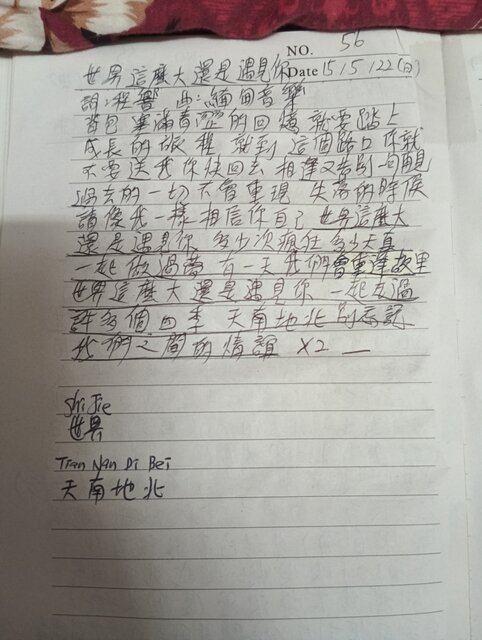 NO. 56
世界這麼大還是遇見你 Date 15/5/22(日)
詞:程響 曲:緬甸音樂
背包 塞滿青澀的回憶 就要踏上
成長的旅程 就到 這個路口 你就
不要送我你快回去 相逢又告別
過去的一切 不會重現 失落的時候
請像我一樣 相信你自己 世界這麼大
還是遇見你 多少次瘋狂 多少天真
一起做過夢 有一天 我們會重逢故里
世界這麼大還是遇見你 一起走過
許多個四季 天南地北 別忘記
我們之間的情誼 X2 —
Shi Jie
世界
Tian Nan Di Bei
天南地北